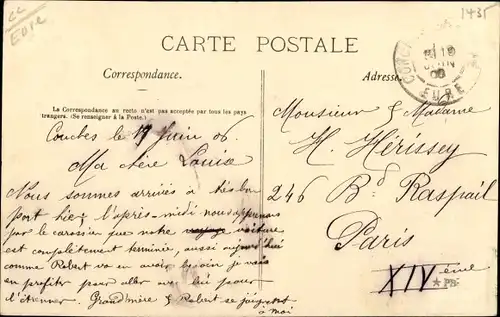 cc
Eure
1435
CARTE POSTALE
Correspondance.
Adresse
La Correspondance au recto n'est pas acceptée par tous les pays
trangers. (Se renseigner à la Poste.)
CONCHES
EURE
Conches le 19 Juin 06
Ma chère Louise
Nous sommes arrivés à très bon
port hier l'après-midi nous apprenons
par le carossier que notre voiture
est complètement terminée, aussi aujourd'hui
comme Robert va en avoir besoin je vais
en profiter pour aller avec lui pour
l'étrenner. Grand'mère & Robert se joignent
à moi
Monsieur & Madame
H. Hérissey
246 Bd Raspail
Paris
XIVème
* PB